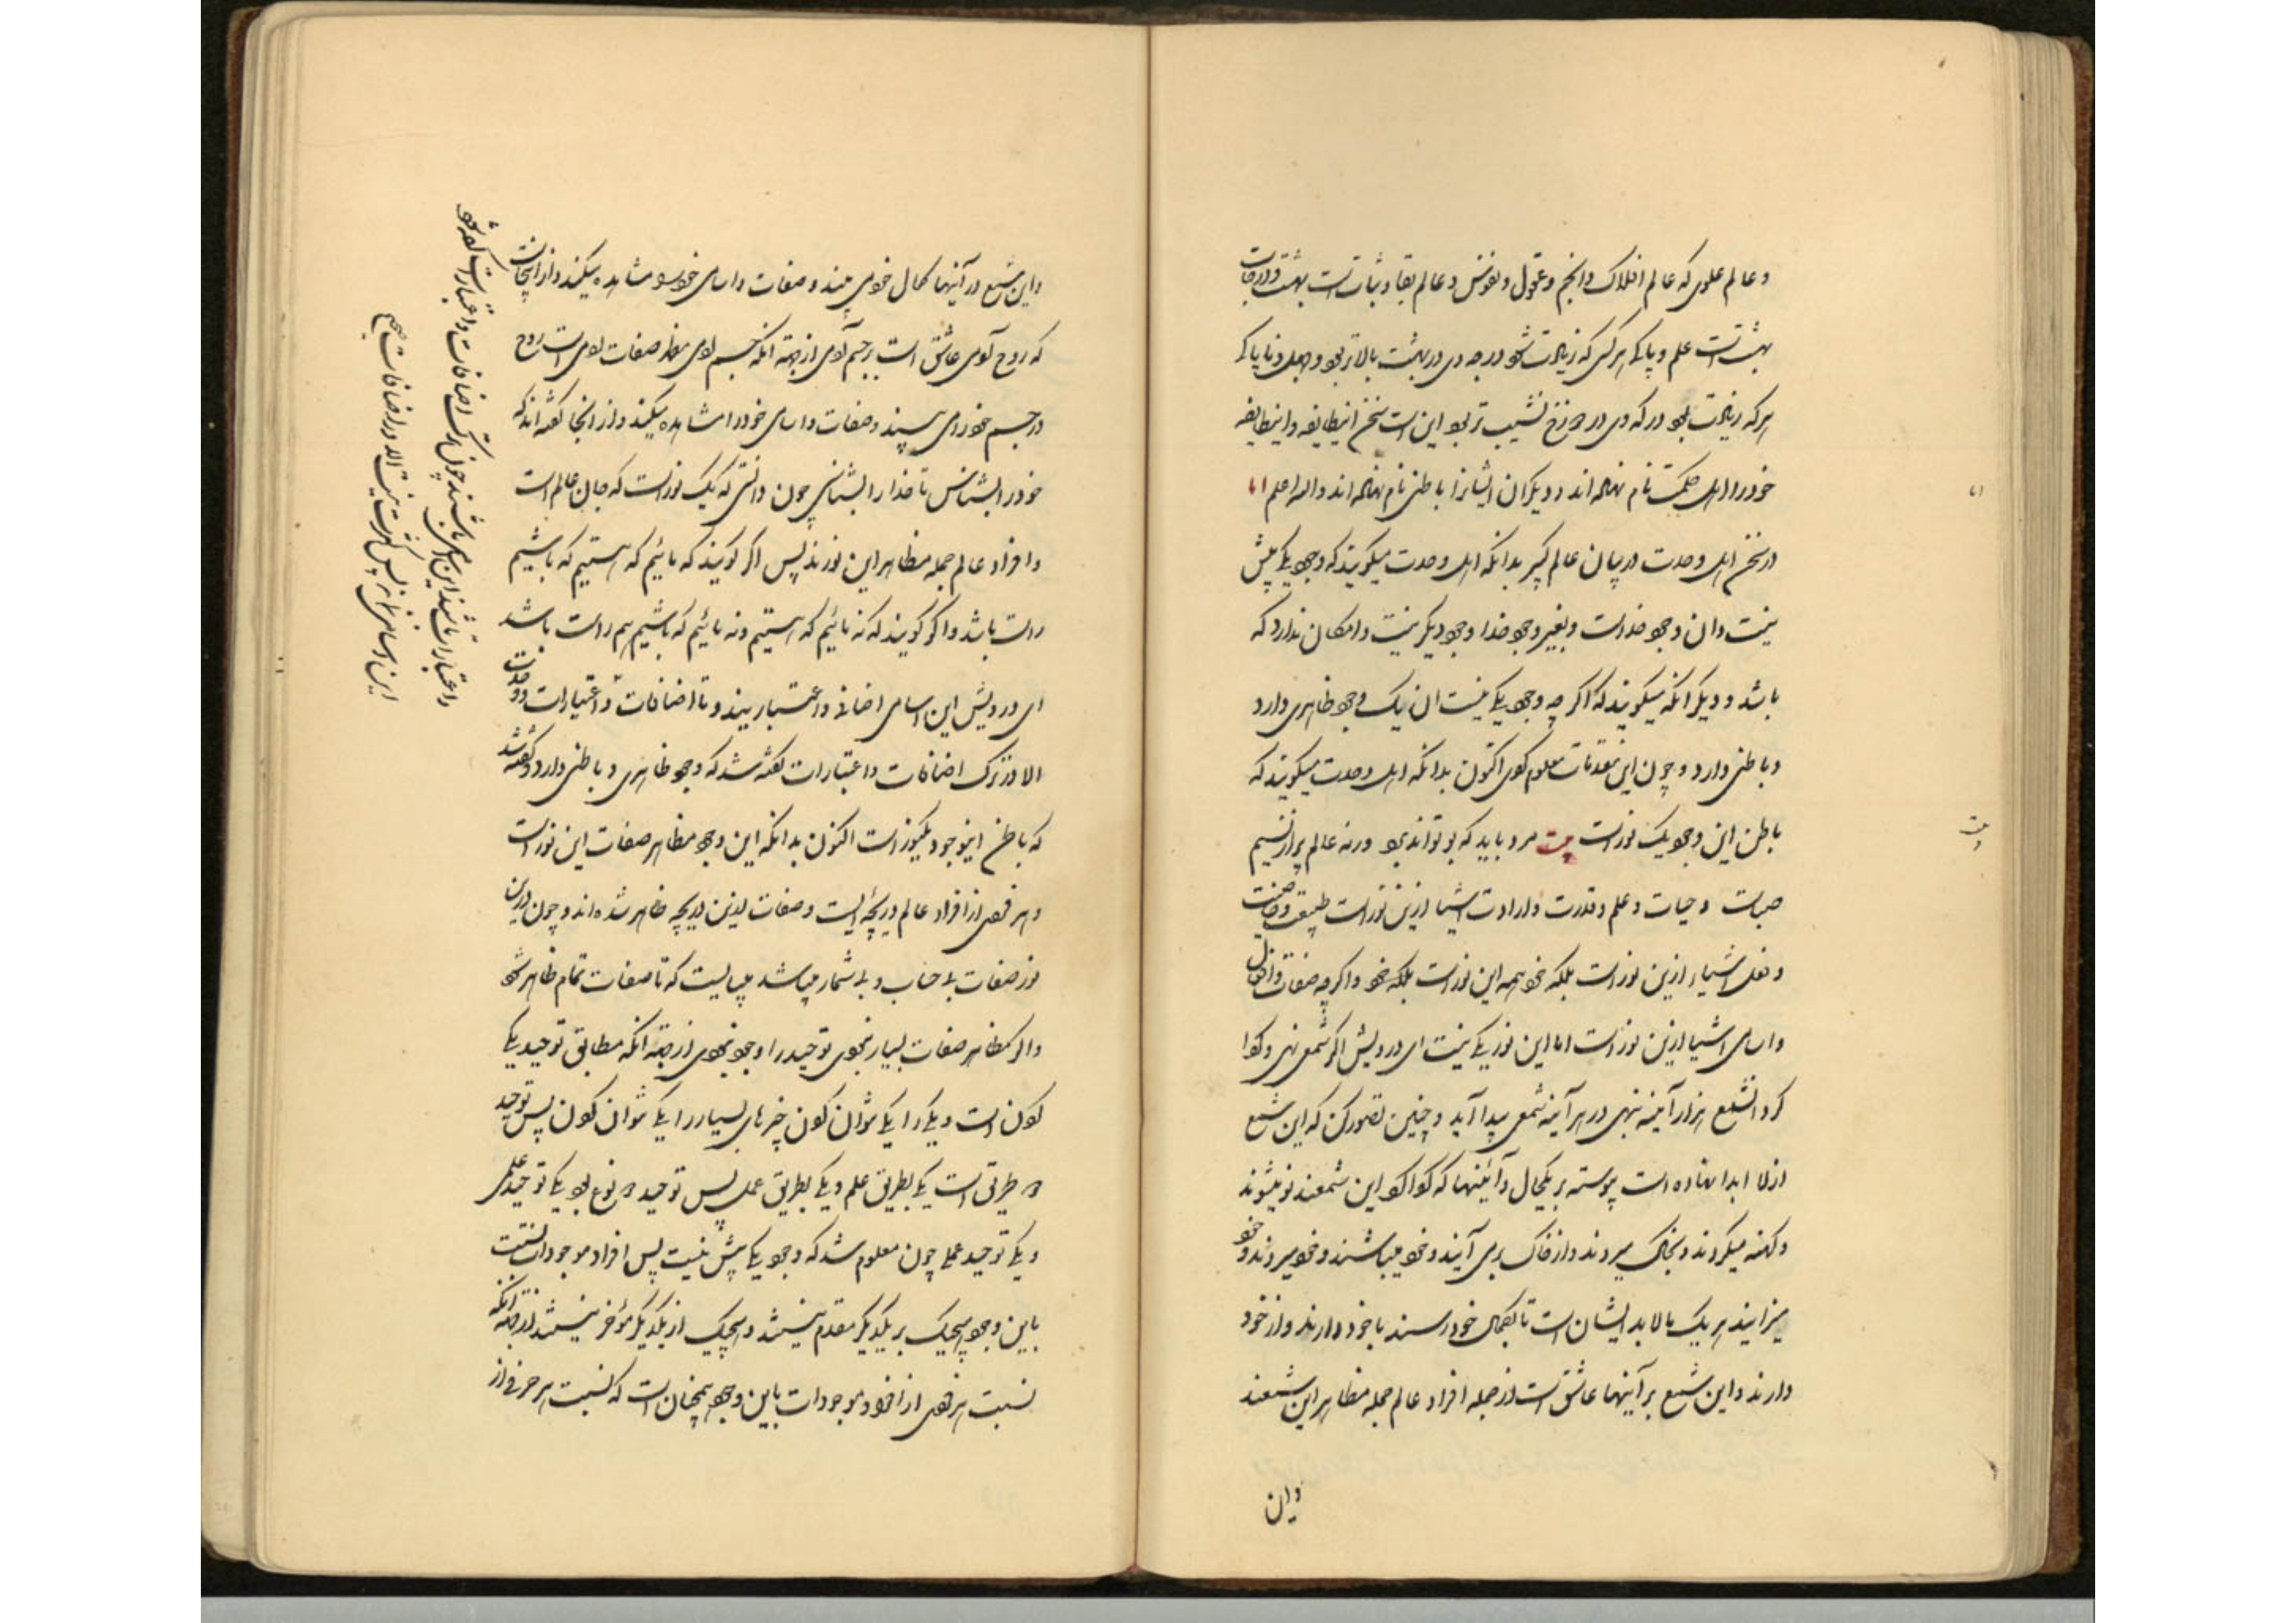 و عالم علوی که عالم افلاک و انجم و عقول و نفوس و عالم بقا و ثبات است بهشت و درجات
بهشت است علم و پاکی هر کس که زیادت شود درجه وی در بهشت بالاتر بود و جهل و ناپاکی
هر که زیادت بود درکه وی در دوزخ نشیب تر بود این است سخن این طایفه و این طایفه
خود را اهل حکمت نام نهاده اند و دیگران ایشانرا باطنی نام نهاده اند والله اعلم اما
در سخن اهل وحدت در بیان عالم کبیر بدانکه اهل وحدت میگویند که وجود یکی بیش
نیست و آن وجود خداست و بغیر وجود خدا وجود دیگر نیست و امکان ندارد که
باشد و دیگر انکه میگویند که اگر چه وجود یکی نیست ان یک وجود ظاهری دارد
و باطنی دارد و چون این مقدمات معلوم کردی اکنون بدانکه اهل وحدت میگویند که
باطن این وجود یک نور است بیت مرد باید که بو تواند برد ورنه عالم پر از نسیم
صباست و حیات و علم و قدرت و ارادت اشیا ازین نور است طبیعت و خاصیت
و فعل اشیاء ازین نور است بلکه خود همه این نور است بلکه خود و اگر چه صفات و افعال
و اسامی اشیا ازین نور است اما این نور یکی نیست ای درویش اگر شمعی نهی و گردا
گرد ان شمع هزار آینه بنهی در هر آینه شمعی پیدا آید و چنین تصور کن که این شمع
ازلا ابدا نهاده است پیوسته بر یکحال و آئینهها که گرداگرد این شمعند نو میشوند
و کهنه میگردند و بخاک میروند و از خاک برمی آیند و خود میباشند و خود میروند و خود
میزایند هر یک بالابد ایشان است تا بکمال خود رسند با خود دارند و از خود
دارند و این شمع بر آینها عاشق است از جمله افراد عالم جمله مظاهر این شمعند
و این
اما
بیت
و این شمع در آینها کمال خود می بیند و صفات و اسامی خود مشاهده میکند و از اینجاست
که روح آدمی عاشق است بر جسم آدمی از جهة انکه جسم آدمی مظهر صفات آدمی است روح
در جسم خود را می بیند و صفات و اسامی خود را مشاهده میکند و از انجا گفته اند که
خود را بشناس تا خدا را بشناسی چون دانستی که یک نور است که جان عالم است
و افراد عالم جمله مظاهر این نورند پس اگر گویند که مائیم که هستیم که باشیم
راست باشد و اگر گویند که نه مائیم که هستیم و نه مائیم که باشیم هم راست باشد
ای درویش این اسامی اضافی و اعتبار بیند و تا اضافات و اعتبارات
الا در ترک اضافات و اعتبارات گفته شد که وجود ظاهری و باطنی دارد و گفته شد
که باطن این وجود یک نور است اکنون بدانکه این وجود مظاهر صفات این نور است
و هر فردی از افراد عالم دریچه ایست و صفات ازین دریچه ظاهر شده اند و چون درین
نور صفات بی حساب و بی شمار میباشد میبایست که تا صفات تمام ظاهر شود
و اگر مظاهر صفات بسیار نبودی توحید را وجود نبودی از جهة انکه مطابق توحید یکی
کردن است و یکی را یکی نتوان کردن چیز های بسیار را یکی توان کردن پس توحید
دو طریق است یکی بطریق علم و یکی بطریق عمل پس توحید دو نوع بود یکی توحید علمی
و یکی توحید عملی چون معلوم شد که وجود یکی بیش نیست پس افراد موجودات بنسبت
باین وجود هیچیک بر یکدیگر مقدم نیستند و هیچیک از یکدیگر مؤخر نیستند از جهة انکه
نسبت هر فردی از افراد موجودات باین وجود همچنان است که نسبت هر حرفی از
و اعتبارات باشند این اسامی باشند چون ترک اضافات و اعتبارات کرده شود
این اسامی نماند پس کثرت نیست الا در اضافات صح